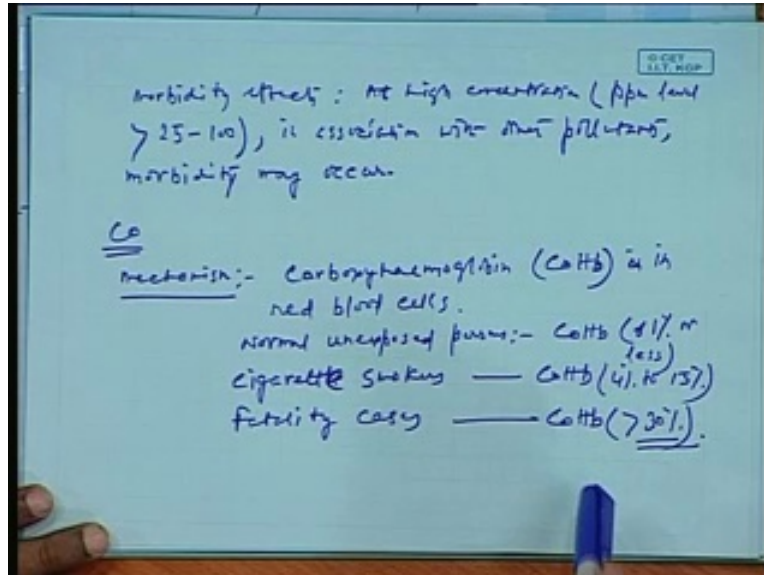 © CET
I.I.T. KGP
morbidity effects : At high concentration ( ppm level
> 25-100), in association with other pollutants,
morbidity may occur.
CO
mechanism:- Carboxyhaemoglobin (COHb) is in
red blood cells.
Normal unexposed persons:- COHb (1% or
less)
Cigarette Smokers — COHb (4% to 15%)
Fatality cases — COHb (>30%).